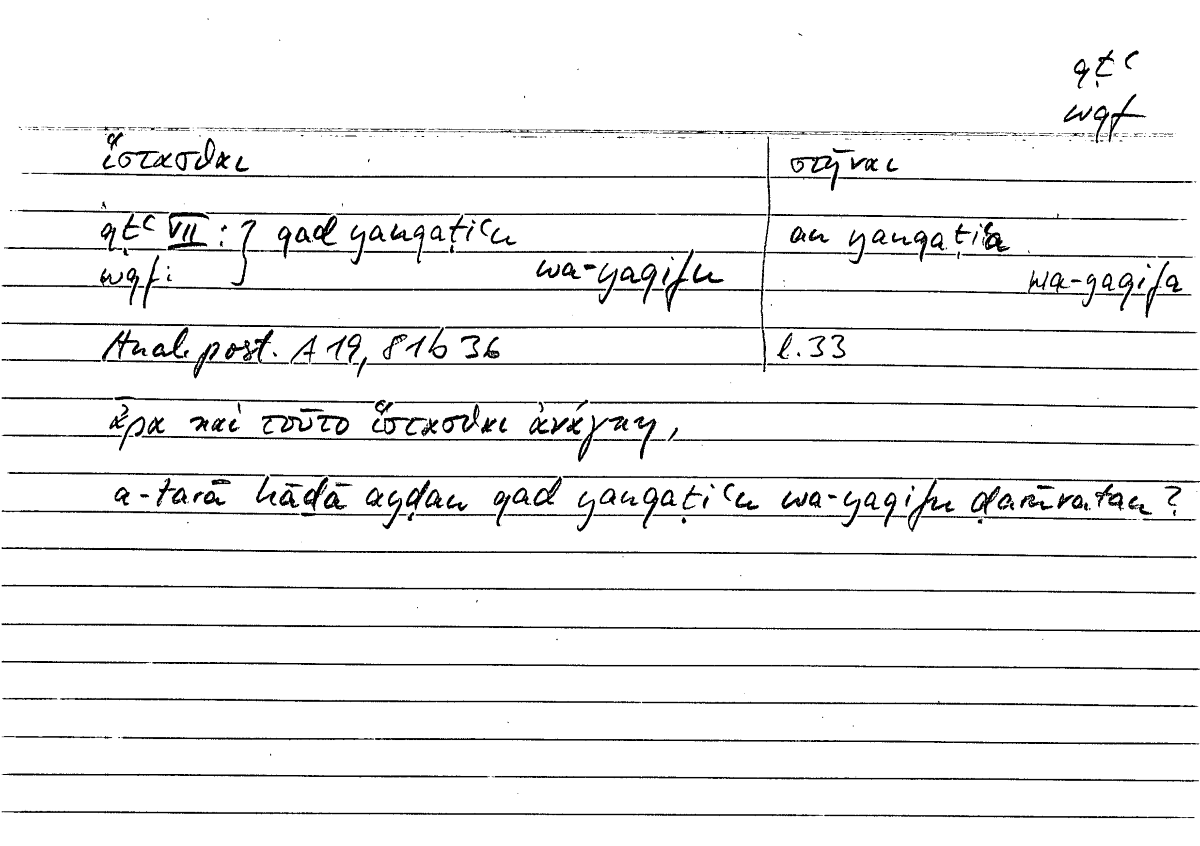 qṭʿ
wqf
ἵστασθαι | στῆναι
qṭʿ VII : } qad yanqaṭiʿu | an yanqaṭiʿa
wqf : wa-yaqifu | wa-yaqifa
Anal. post. A 19, 81b 36 | l. 33
ἆρα καὶ τοῦτο ἵστασθαι ἀνάγκη,
a-tarā hāḏā ayḍan qad yanqaṭiʿu wa-yaqifu ḍarūratan ?